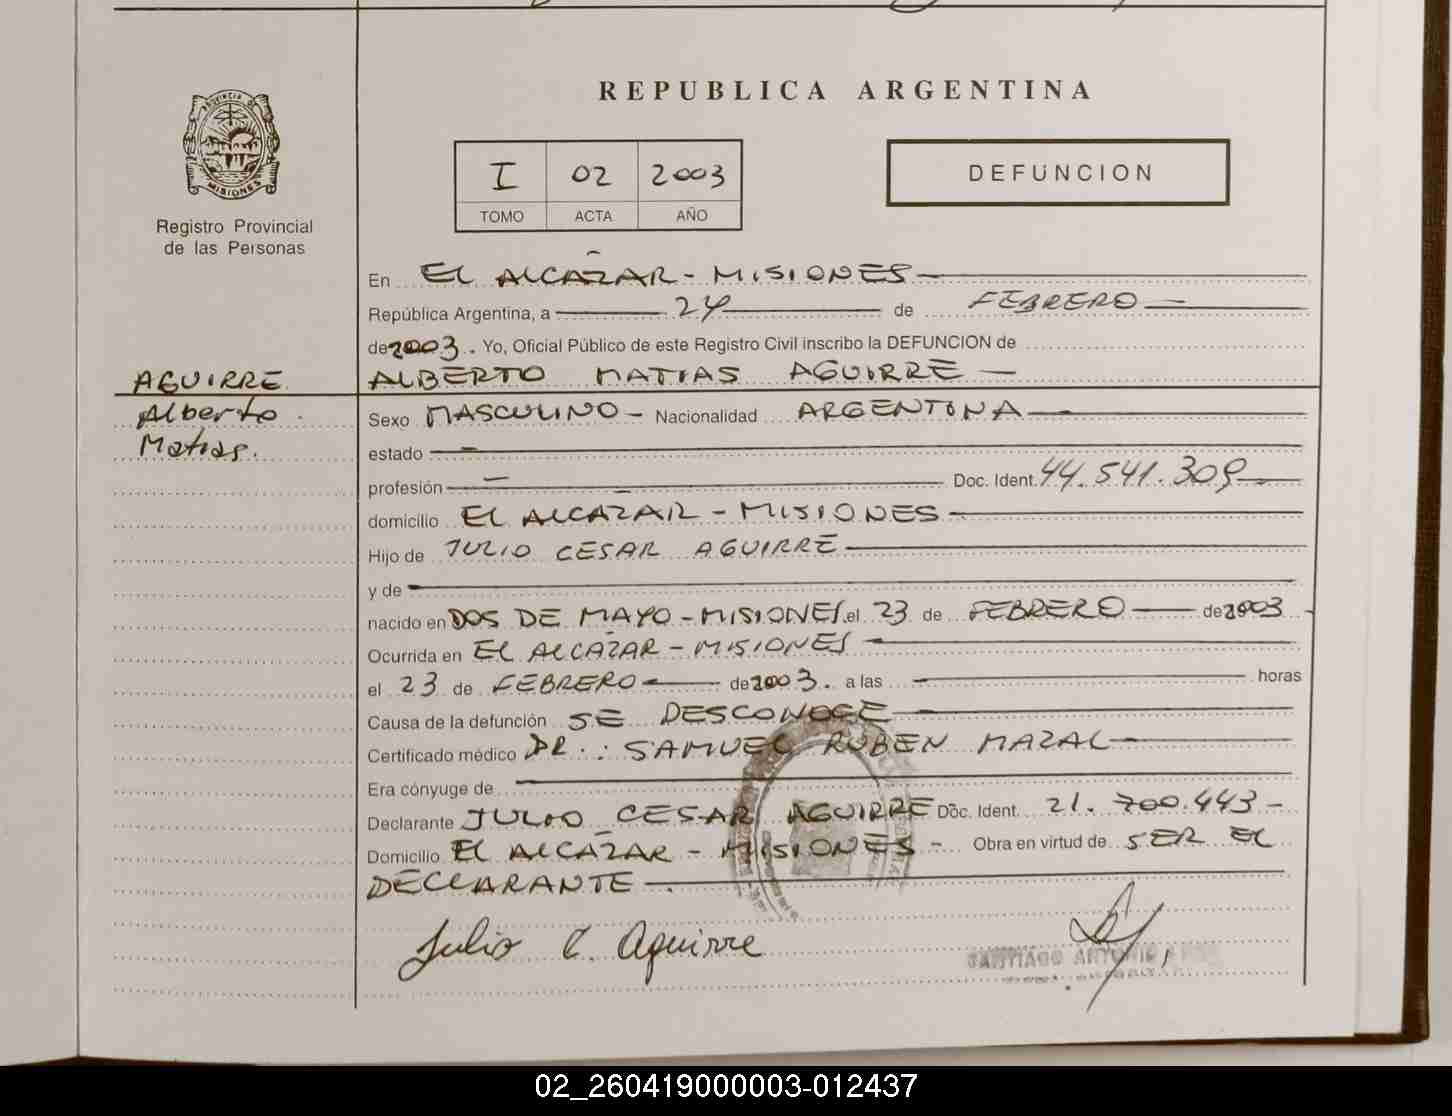 REPUBLICA ARGENTINA
PROVINCIA DE
MISIONES
Registro Provincial
de las Personas
I 02 2003
TOMO ACTA AÑO
DEFUNCION
En EL ALCAZAR - MISIONES
República Argentina, a 24 de FEBRERO
de 2003. Yo, Oficial Público de este Registro Civil inscribo la DEFUNCION de
AGUIRRE
Alberto
Matias.
ALBERTO MATIAS AGUIRRE
Sexo MASCULINO - Nacionalidad ARGENTINA
estado
profesión Doc. Ident. 44.541.309
domicilio EL ALCAZAR - MISIONES
Hijo de JULIO CESAR AGUIRRE
y de
nacido en DOS DE MAYO - MISIONES el 23 de FEBRERO de 2003
Ocurrida en EL ALCAZAR - MISIONES
el 23 de FEBRERO de 2003. a las horas
Causa de la defunción SE DESCONOCE
Certificado médico DR.: SAMUEL RUBEN MAZAL
Era cónyuge de
Declarante JULIO CESAR AGUIRRE Doc. Ident. 21.700.443 -
Domicilio EL ALCAZAR - MISIONES - Obra en virtud de SER EL
DECLARANTE
Julio C. Aguirre
SANTIAGO ANTONIO
02_260419000003-012437